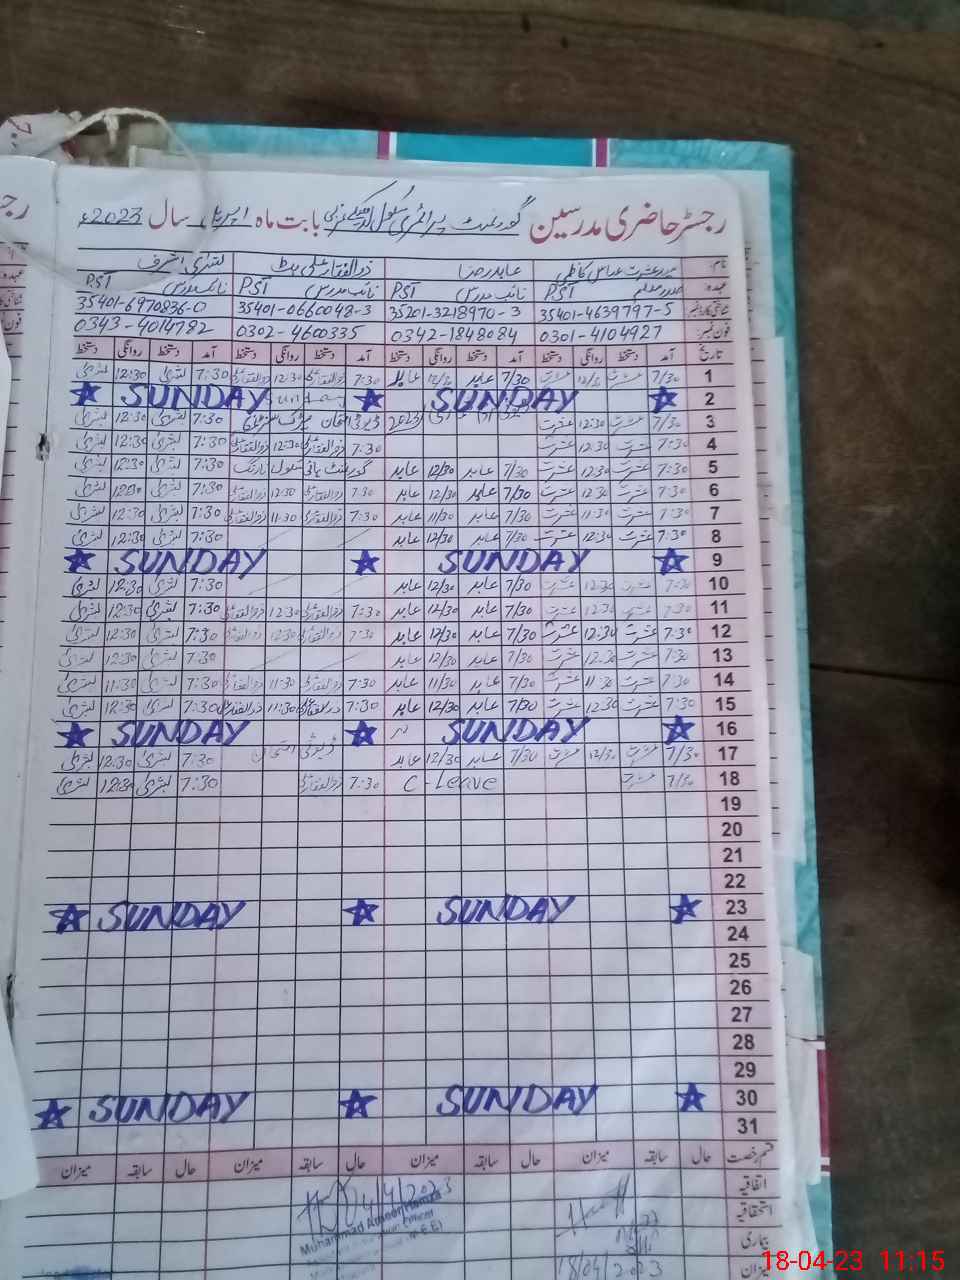 رجسٹر حاضری مدرسین گورنمنٹ پرائمری سکول بابت ماہ اپریل سال 2023ء
نام عابد رضا ذوالفقار علی بٹ بشریٰ اشرف
عہدہ صدر معلم PST نائب مدرس PST نائب مدرس PST نائب مدرس PST
شناختی کارڈ نمبر 35401-4639797-5 35201-3218970-3 35401-0660048-3 35401-6970836-0
فون نمبر 0301-4104927 0342-1848084 0302-4600335 0343-4014782
تاریخ آمد دستخط روانگی دستخط آمد دستخط روانگی دستخط آمد دستخط روانگی دستخط آمد دستخط روانگی دستخط
1 7/30 عشرت 12/30 عشرت 7/30 عابد 12/30 عابد 7:30 ذوالفقار علی 12:30 ذوالفقار علی 7:30 بشریٰ 12:30 بشریٰ
2 SUNDAY SUNDAY
3 7/30 عشرت 12:30 عشرت 2023 7:30 بشریٰ 12:30 بشریٰ
4 7:30 عشرت 12:30 عشرت 7:30 ذوالفقار علی 12:30 ذوالفقار علی 7:30 بشریٰ 12:30 بشریٰ
5 7:30 عشرت 12:30 عشرت 7/30 عابد 12/30 عابد گورنمنٹ ہائی سکول نارنگ 7:30 بشریٰ 12:30 بشریٰ
6 7:30 عشرت 12:30 عشرت 7/30 عابد 12/30 عابد 7:30 ذوالفقار علی 12:30 ذوالفقار علی 7:30 بشریٰ 12:30 بشریٰ
7 7:30 عشرت 11:30 عشرت 7/30 عابد 11/30 عابد 7:30 ذوالفقار علی 11:30 ذوالفقار علی 7:30 بشریٰ 12:30 بشریٰ
8 7:30 عشرت 12:30 عشرت 7/30 عابد 12/30 عابد 7:30 بشریٰ 12:30 بشریٰ
9 SUNDAY SUNDAY
10 7:30 عشرت 12:30 عشرت 7/30 عابد 12/30 عابد 7:30 بشریٰ 12:30 بشریٰ
11 7:30 عشرت 12:30 عشرت 7/30 عابد 12/30 عابد 7:30 ذوالفقار علی 12:30 ذوالفقار علی 7:30 بشریٰ 12:30 بشریٰ
12 7:30 عشرت 12:30 عشرت 7/30 عابد 12/30 عابد 7:30 ذوالفقار علی 12:30 ذوالفقار علی 7:30 بشریٰ 12:30 بشریٰ
13 7:30 عشرت 12:30 عشرت 7/30 عابد 12/30 عابد 7:30 بشریٰ 12:30 بشریٰ
14 7:30 عشرت 11:30 عشرت 7/30 عابد 11/30 عابد 7:30 ذوالفقار علی 11:30 ذوالفقار علی 7:30 بشریٰ 11:30 بشریٰ
15 7:30 عشرت 12:30 عشرت 7/30 عابد 12/30 عابد 7:30 ذوالفقار علی 11:30 ذوالفقار علی 7:30 بشریٰ 12:30 بشریٰ
16 SUNDAY SUNDAY
17 7/30 عشرت 12/30 عشرت 7/30 عابد 12/30 عابد ڈیوٹی 7:30 بشریٰ 12:30 بشریٰ
18 7/30 عشرت C-Leave 7:30 ذوالفقار علی 7:30 بشریٰ 12:30 بشریٰ
19
20
21
22
23 SUNDAY SUNDAY
24
25
26
27
28
29
30 SUNDAY SUNDAY
31
قسم رخصت حال سابقہ میزان حال سابقہ میزان حال سابقہ میزان حال سابقہ میزان
اتفاقیہ 04/4/2023
استحقاقیہ
بیماری
میزان 18/04/2023
18-04-23 11:15